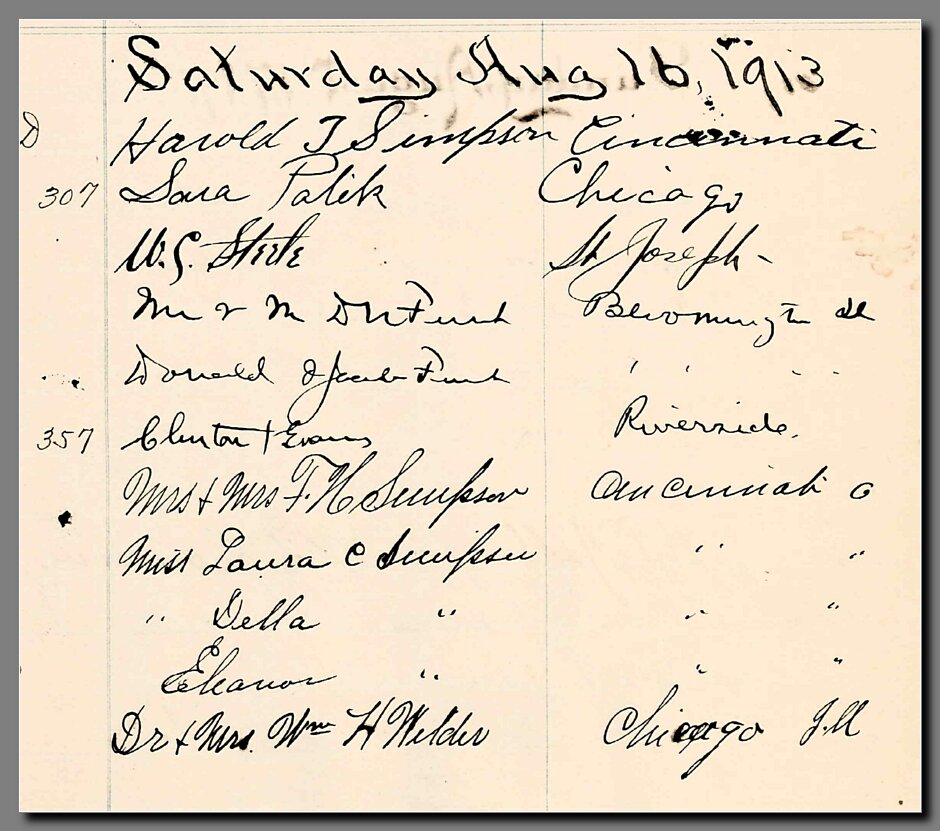 Saturday Aug 16, 1913
D Harold T Simpson Cincinnati
307 Sara Palik Chicago
W. G. Steele St Joseph -
Mr & M D N Funk Bloomington Ill
Donald & Jacob Funk " "
357 Clinton + Evans Riverside.
Mrs & Mrs F. H Simpson Cincinnati O
Miss Laura C Simpson " "
" Della " " "
Eleanor " " "
Dr & Mrs. Wm H Wilder Chicago Ill